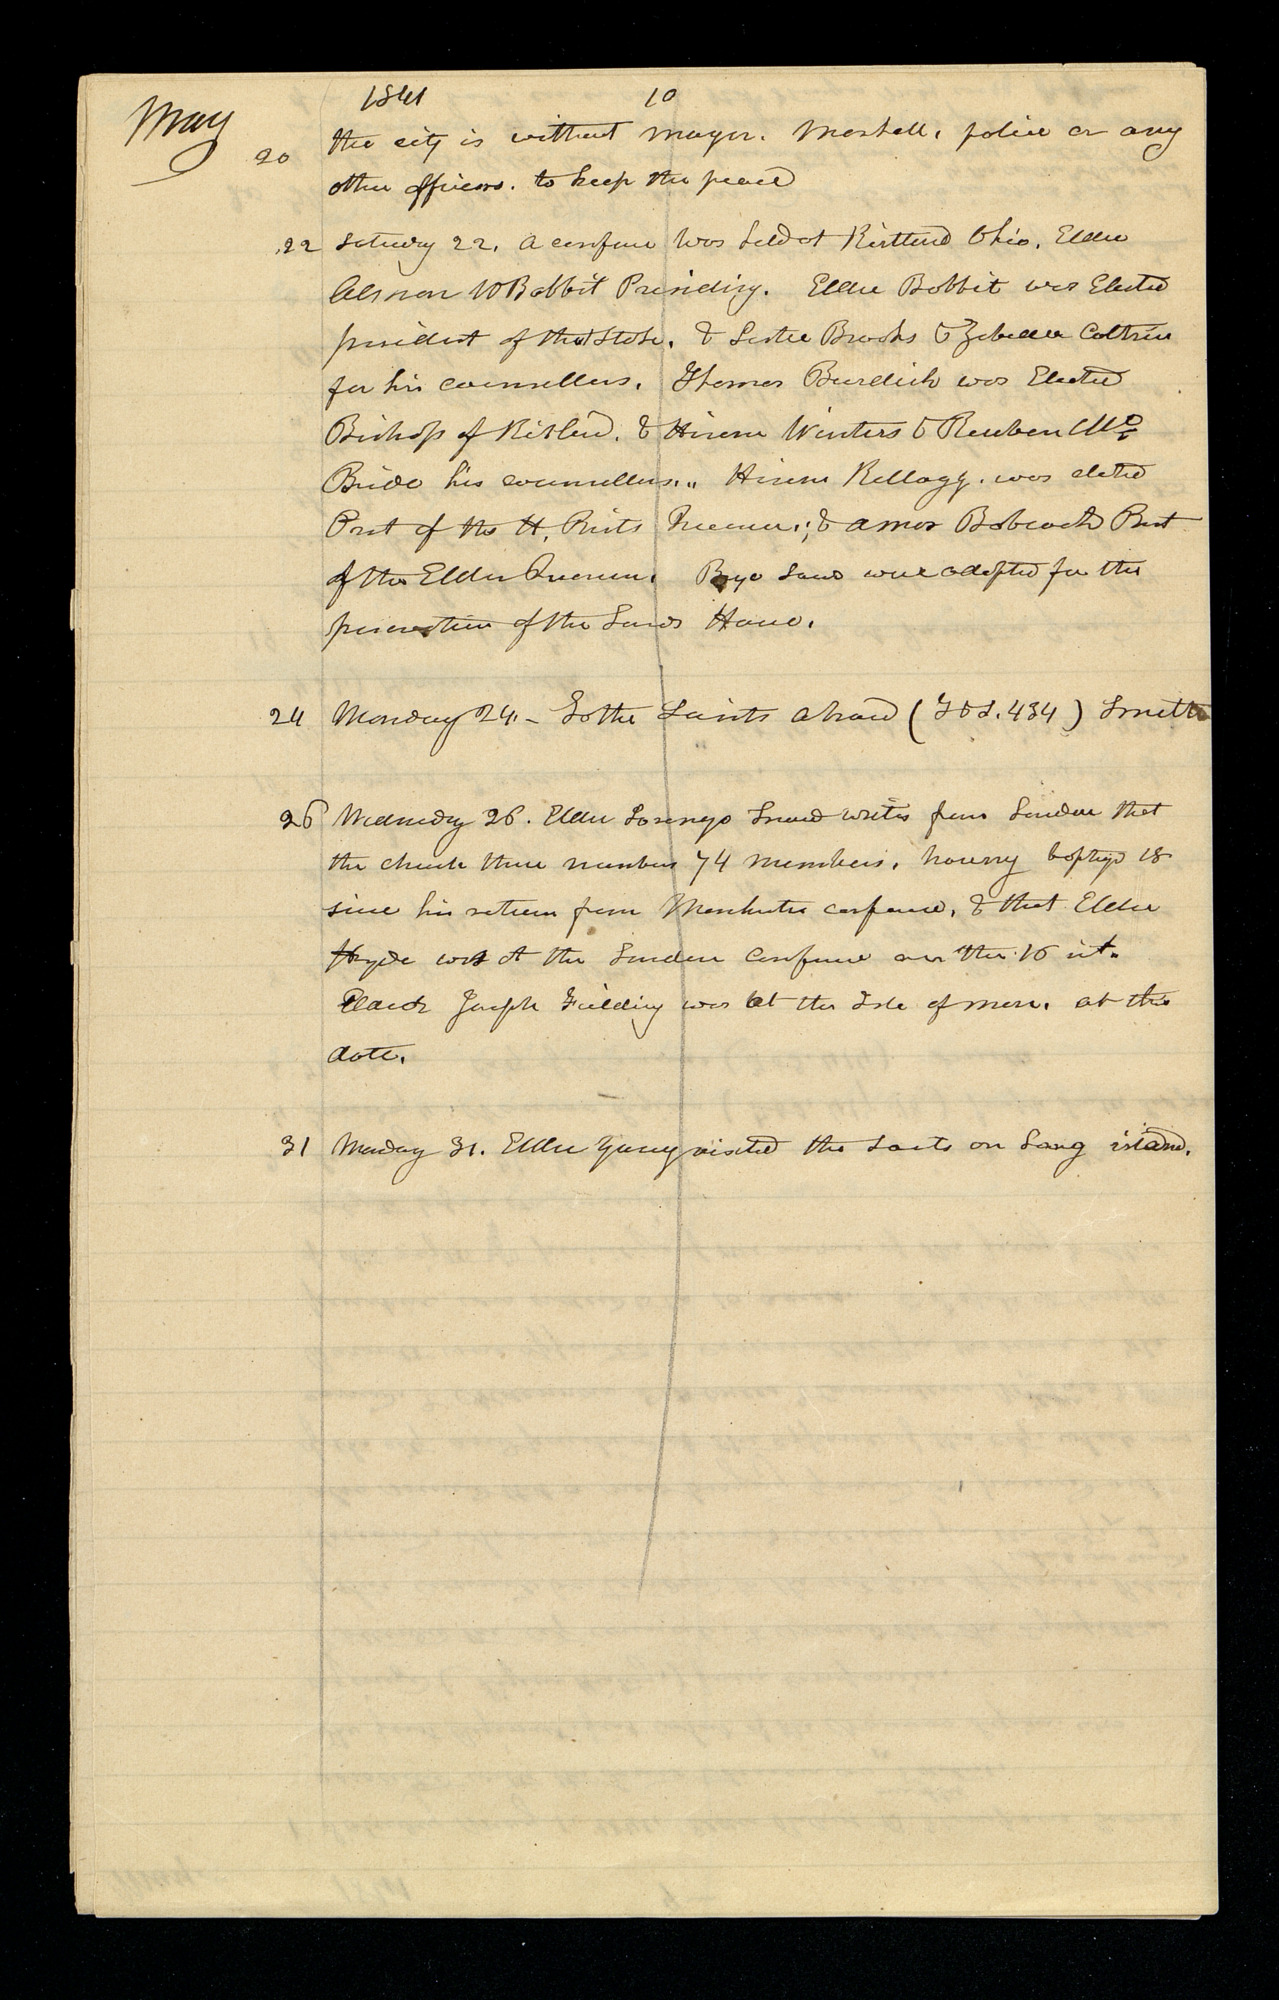 1841 10
May
20 the city is without mayor. Marshall, police or any
other officers. to keep the peace
22 Saturday 22. A confernce was held at Kirtland Ohio. Elder
Almon W Babbit Presiding. Elder Babbit was Elected
president of that Stake, & Lester Brooks & Zebedee Coltrin
for his counsellors. Thomas Burdick was Elected
Bishop of Kirtland. & Hiram Winters & Reuben Mc
Bride his counsellors.,, Hiram Kellogg. was elected
Prest of the H. Priests Quorum; & Amos Babcock Prest
of the Elders Quorum. Bye Laws were adopted for the
preservation of the Lords House.
24 Monday 24.- To the Saints abroad (T & S. 434) Smith
26 Wednesday 26. Elder Lorenzo Snow writes from London that
the church there numbers 74 members. having baptizd 18
since his return from Manchester conference, & that Elder
Hyde was at the London Conference on the 16 ult.
Elder Joseph Fielding was at the Isle of Man. at this
date.
31 Monday 31. Elder Young visited the Saints on Long island.